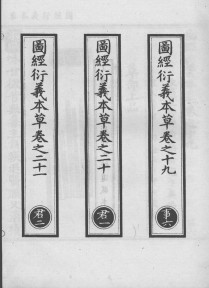 圖經衍義本草卷之十九
事六
圖經衍義本草卷之二十
君一
圖經衍義本草卷之二十一
君二